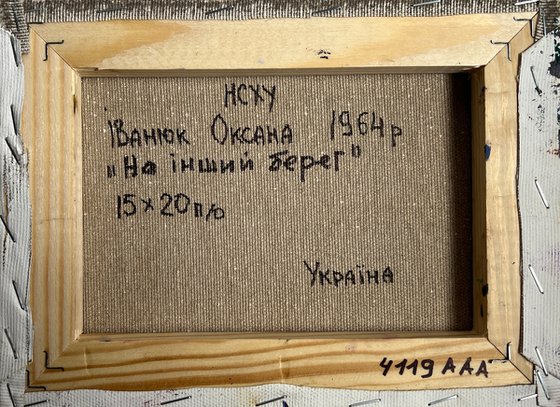 НСХУ
Іванюк Оксана 1964 р
„На інший берег"
15×20 п/о
Україна
4119 ААА